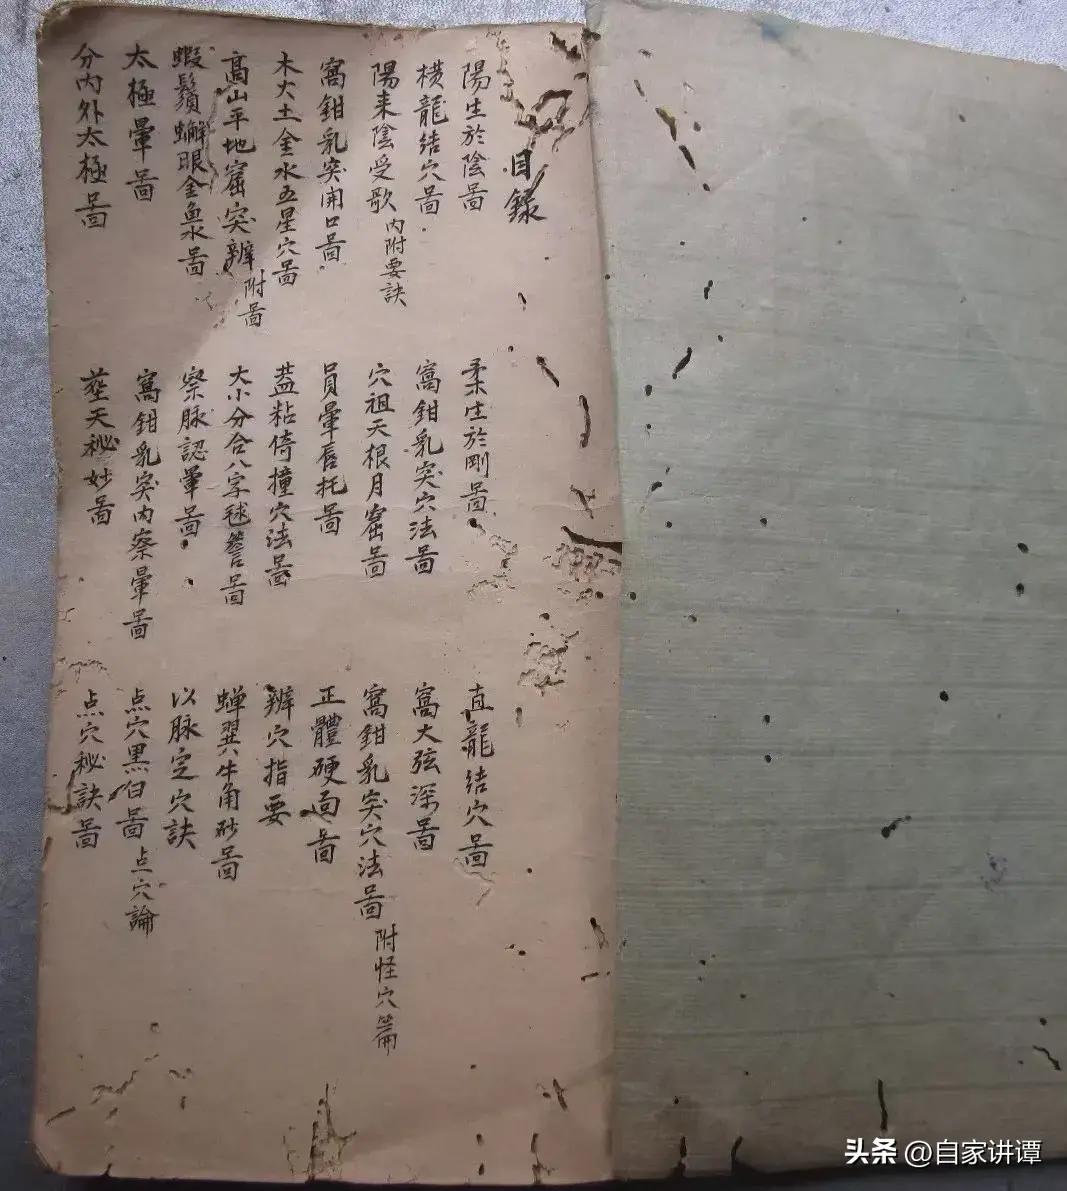 目錄
陽生於陰啚 柔生於剛啚 直龍結穴啚
横龍結穴啚 窩鉗乳突穴法啚 窩大弦深啚
陽来陰受歌 内附要訣 穴祖天根月窟啚 窩鉗乳突穴法啚 附怪穴篇
窩鉗乳突開口啚 員暈唇托啚 正體硬面啚
木火土金水五星穴啚 葢粘倚撞穴法啚 辨穴指要
高山平地窟突辨 附啚 大小分合八字毬簷啚 蟬翼牛角砂啚
蝦鬚蠏眼金魚水啚 察脉認暈啚 以脉定穴訣
太極暈啚 窩鉗乳突内察暈啚 点穴黑白啚 点穴論
分内外太極啚 天秘妙啚 点穴秘訣啚
头条 @自家讲谭